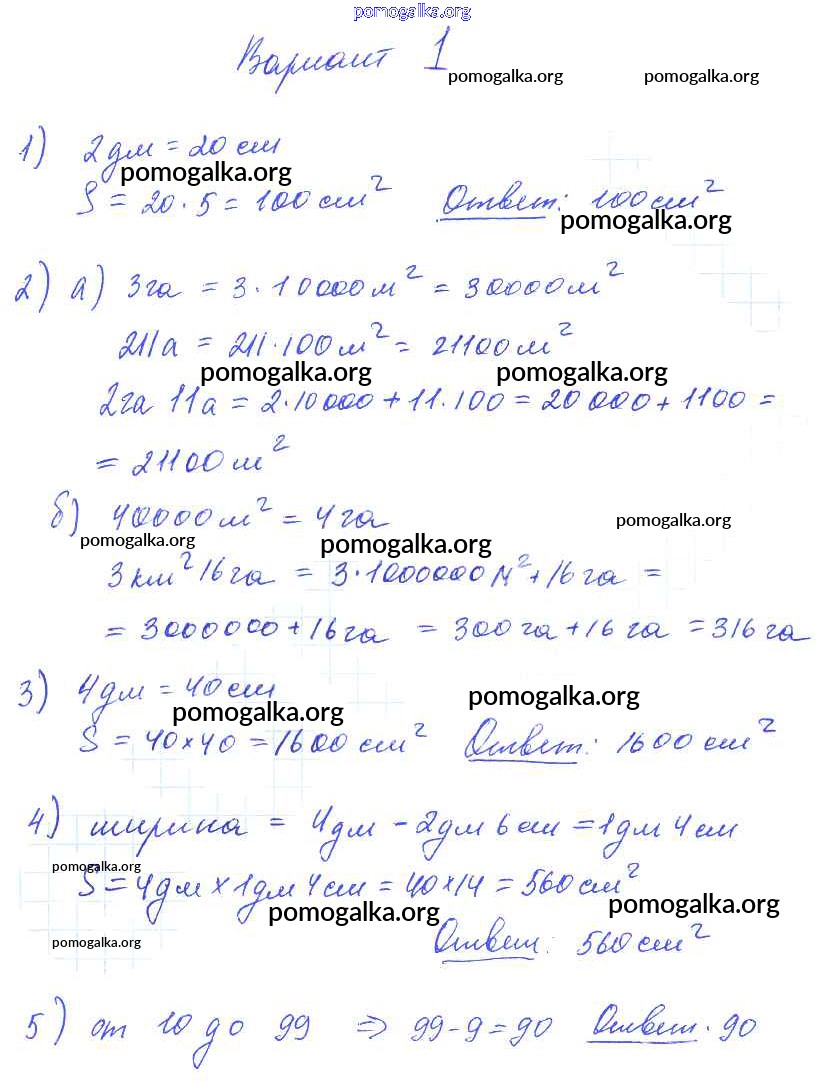 pomogalka.org
Вариант 1
pomogalka.org pomogalka.org
1) 2дм = 20см
pomogalka.org
S = 20·5 = 100см² Ответ: 100см²
pomogalka.org
2) а) 3га = 3·10000м² = 30000м²
211а = 211·100м² = 21100м²
pomogalka.org pomogalka.org
2га 11а = 2·10000+11·100 = 20000+1100 =
= 21100м²
б) 40000м² = 4га
pomogalka.org
pomogalka.org pomogalka.org
3км² 16га = 3·1000000м²+16га =
= 3000000+16га = 300га+16га = 316га
3) 4дм = 40см
pomogalka.org
pomogalka.org
S = 40×40 = 1600см² Ответ: 1600см²
4) ширина = 4дм - 2дм 6см = 1дм 4см
pomogalka.org
S = 4дм × 1дм 4см = 40×14 = 560см²
pomogalka.org pomogalka.org
pomogalka.org
Ответ: 560см²
5) от 10 до 99 ⇒ 99-9=90 Ответ. 90